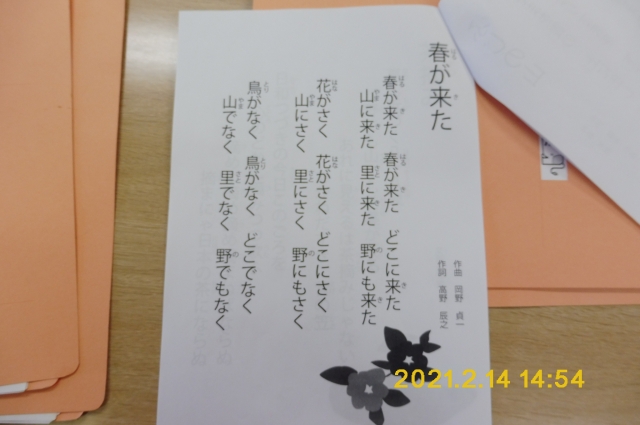 春が来た
作曲 岡野 貞一
作詞 高野 辰之
春が来た 春が来た どこに来た
山に来た 里に来た 野にも来た
花がさく 花がさく どこにさく
山にさく 里にさく 野にもさく
鳥がなく 鳥がなく どこでなく
山でなく 里でなく 野でもなく
2021.2.14 14:54